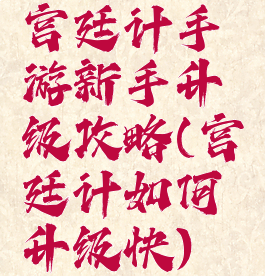 宫廷计手
游新手升
级攻略(宫
廷计如何
升级快)